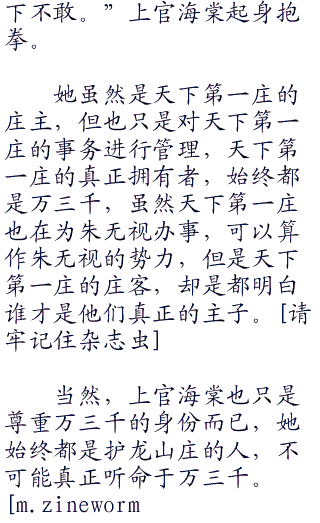 下不敢。”上官海棠起身抱
拳。
她虽然是天下第一庄的
庄主，但也只是对天下第一
庄的事务进行管理，天下第
一庄的真正拥有者，始终都
是万三千，虽然天下第一庄
也在为朱无视办事，可以算
作朱无视的势力，但是天下
第一庄的庄客，却是都明白
谁才是他们真正的主子。[请
牢记住杂志虫]
当然，上官海棠也只是
尊重万三千的身份而已，她
始终都是护龙山庄的人，不
可能真正听命于万三千。
[m.zineworm